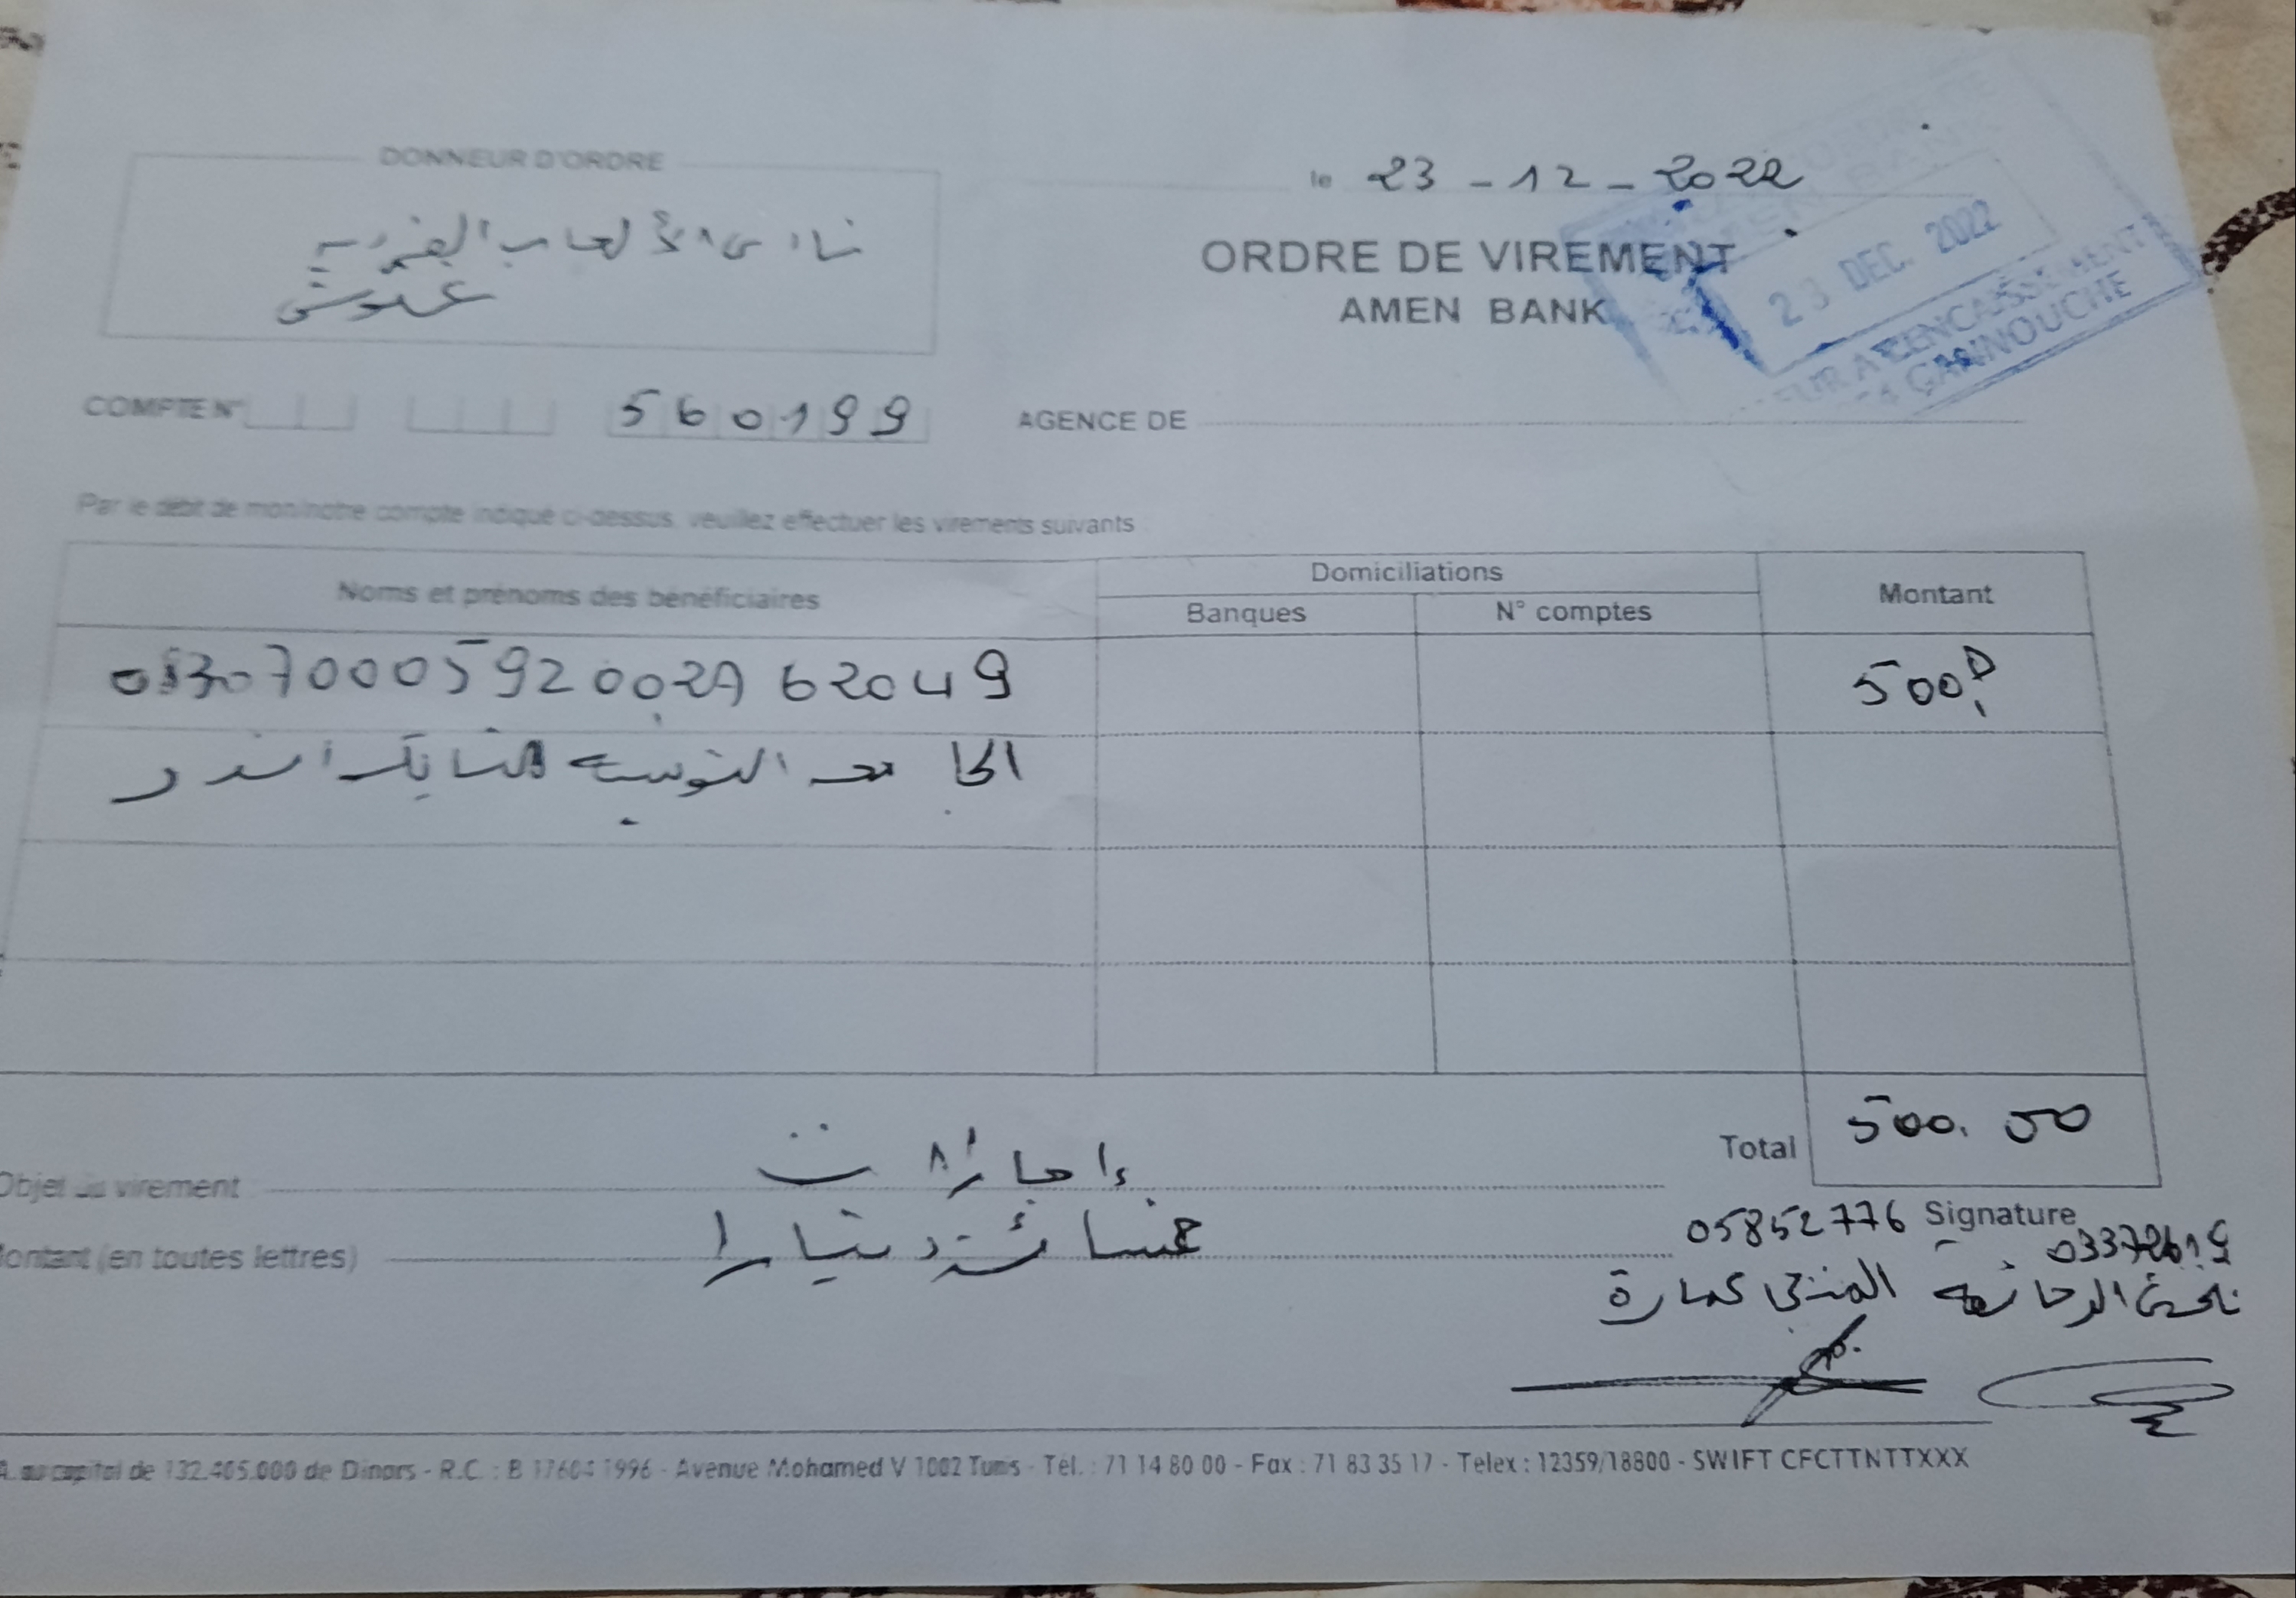 DONNEUR D'ORDRE
نادي الألعاب الفردية
غنوش
le 23 - 12 - 2022
ORDRE DE VIREMENT
AMEN BANK
23 DEC. 2022
ENCAISSEMENT
GANNOUCHE
COMPTE N° 560199
AGENCE DE
Par le débit de mon/notre compte indiqué ci-dessus, veuillez effectuer les virements suivants
Noms et prénoms des bénéficiaires
Domiciliations
Banques
N° comptes
Montant
62049
500D
الجامعة التونسية للتايكواندو
Total 500.00
Objet du virement إجازات
Montant (en toutes lettres) خمسائة دينارا
Signature
05852776
المنجي عمارة
au capital de 132.405.000 de Dinars - R.C. : B 17604 1996 - Avenue Mohamed V 1002 Tunis - Tél. : 71 14 80 00 - Fax : 71 83 35 17 - Telex : 12359/18800 - SWIFT CFCTTNTTXXX